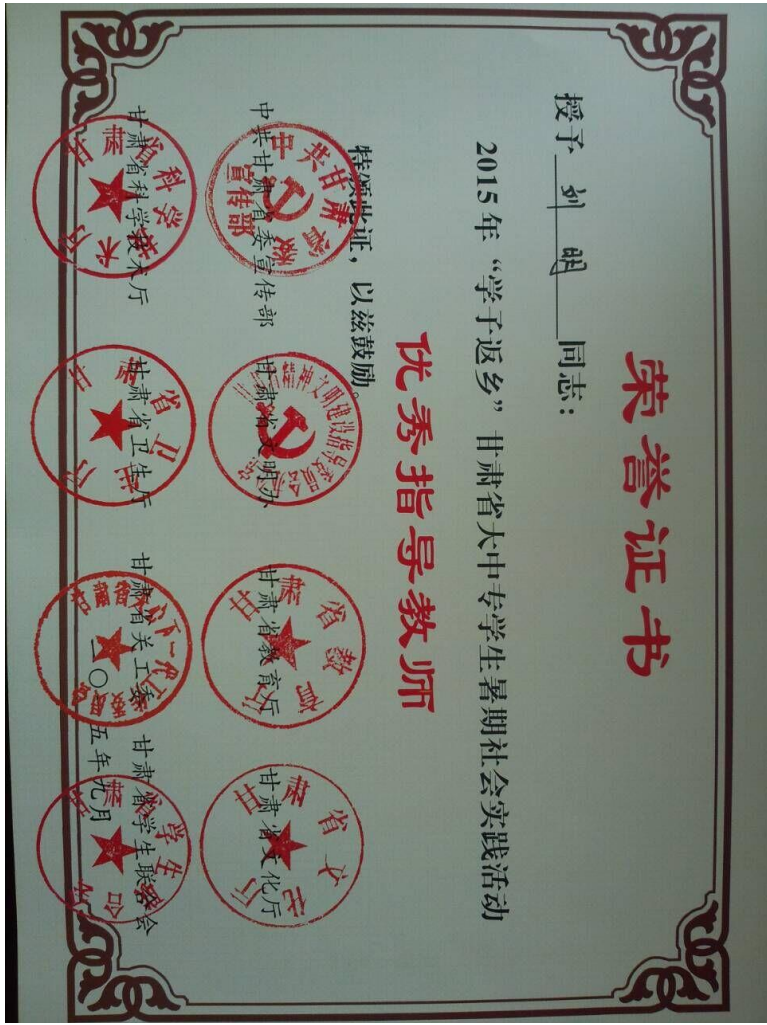 荣誉证书
授予 刘明 同志：
2015年“学子返乡”甘肃省大中专学生暑期社会实践活动
优秀指导教师
特颁此证，以兹鼓励。
中共甘肃省委宣传部 甘肃省文明办 甘肃省教育厅 甘肃省文化厅
甘肃省科学技术厅 甘肃省卫生厅 甘肃省关工委 甘肃省学生联合会
二〇一五年九月